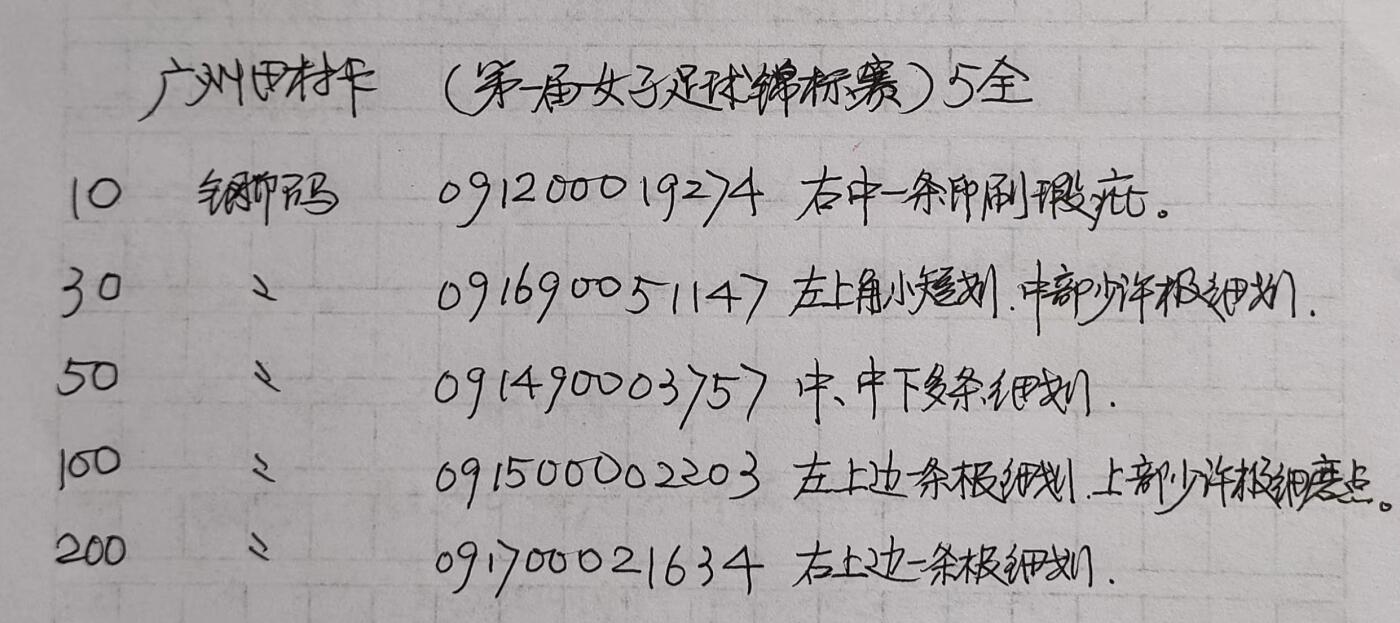 广州田村卡 (第一届女子足球锦标赛) 5全
10 钢印码 091200019274 右中一条印刷瑕疵。
30 〃 091690051147 左上角小短划.中部少许极细划.
50 〃 091490003757 中、中下多条细划.
100 〃 091500002203 左上边一条极细划.上部少许极细磨点。
200 〃 091700021634 右上边一条极细划.